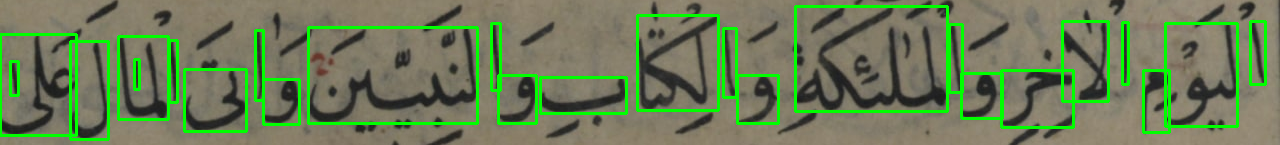 الْيَوْمِ الْاٰخِرِ وَالْمَلٰٓئِكَةِ وَالْكِتَابِ وَالنَّبِيّٖينَ وَاٰتَى الْمَالَ عَلٰى